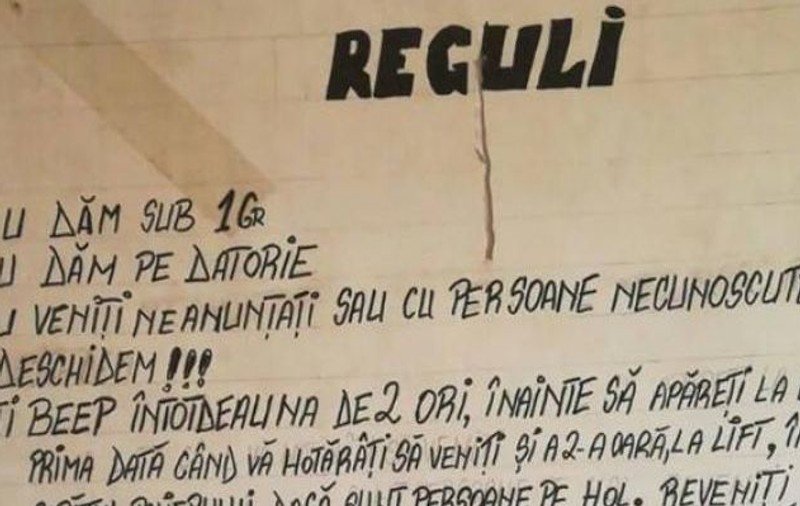 REGULI
U DĂM SUB 1GR
U DĂM PE DATORIE
U VENIȚI NEANUNȚAȚI SAU CU PERSOANE NECUNOSCUTE
DESCHIDEM !!!
ȚI BEEP ÎNTOTDEAUNA DE 2 ORI, ÎNAINTE SĂ APĂREȚI LA
PRIMA DATĂ CÂND VĂ HOTĂRÂȚI SĂ VENIȚI ȘI A 2-A OARĂ, LA LIFT,
DACĂ SUNT PERSOANE PE HOL. REVENIȚI